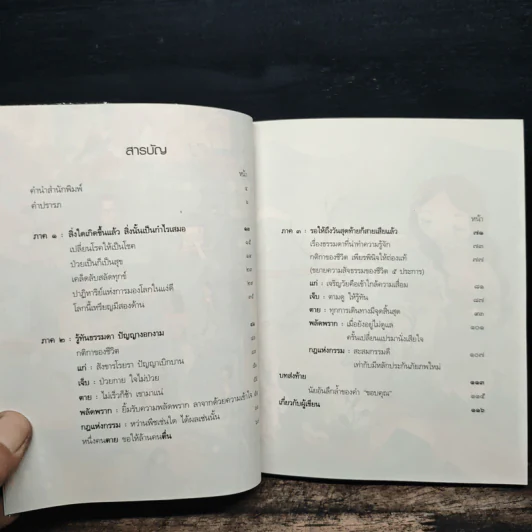 สารบัญ
หน้า
คำนำสำนักพิมพ์
คำปรารภ
ภาค ๑ : สิ่งใดเกิดขึ้นแล้ว สิ่งนั้นเป็นกำไรเสมอ ๑๑
เปลี่ยนโรคให้เป็นโชค
ป่วยเป็นก็เป็นสุข
เคล็ดลับสลัดทุกข์
ปาฏิหาริย์แห่งการมองโลกในแง่ดี
โลกนี้เหรียญมีสองด้าน
ภาค ๒ : รู้ทันธรรมดา ปัญญางอกงาม
กติกาของชีวิต
แก่ : สังขารโรยรา ปัญญาเบิกบาน
เจ็บ : ป่วยกาย ใจไม่ป่วย
ตาย : ไม่เร็วก็ช้า เขามาแน่
พลัดพราก : ยิ้มรับความพลัดพราก ลาจากด้วยความเข้าใจ
กฎแห่งกรรม : หว่านพืชเช่นใด ได้ผลเช่นนั้น
หนึ่งคนตาย ขอให้ล้านคนตื่น
หน้า
ภาค ๓ : รอให้ถึงวันสุดท้ายก็สายเสียแล้ว ๗๑
เรื่องธรรมดาที่น่าทำความรู้จัก ๗๓
กติกาของชีวิต เพียรพินิจให้ถ่องแท้ ๗๗
(ขยายความสัจธรรมของชีวิต ๕ ประการ)
แก่ : เจริญวัยคือเข้าใกล้ความเสื่อม ๘๑
เจ็บ : ตามดู ให้รู้ทัน
ตาย : ทุกการเดินทางมีจุดสิ้นสุด
พลัดพราก : เมื่อยังอยู่ไม่ดูแล ๑๐๑
ครั้นเปลี่ยนแปรมานั่งเสียใจ
กฎแห่งกรรม : สะสมกรรมดี ๑๐๗
เท่ากับมีหลักประกันภัยภพใหม่
บทส่งท้าย ๑๑๓
นัยอันลึกล้ำของคำ “ขอบคุณ” ๑๑๕
เกี่ยวกับผู้เขียน ๑๑๖